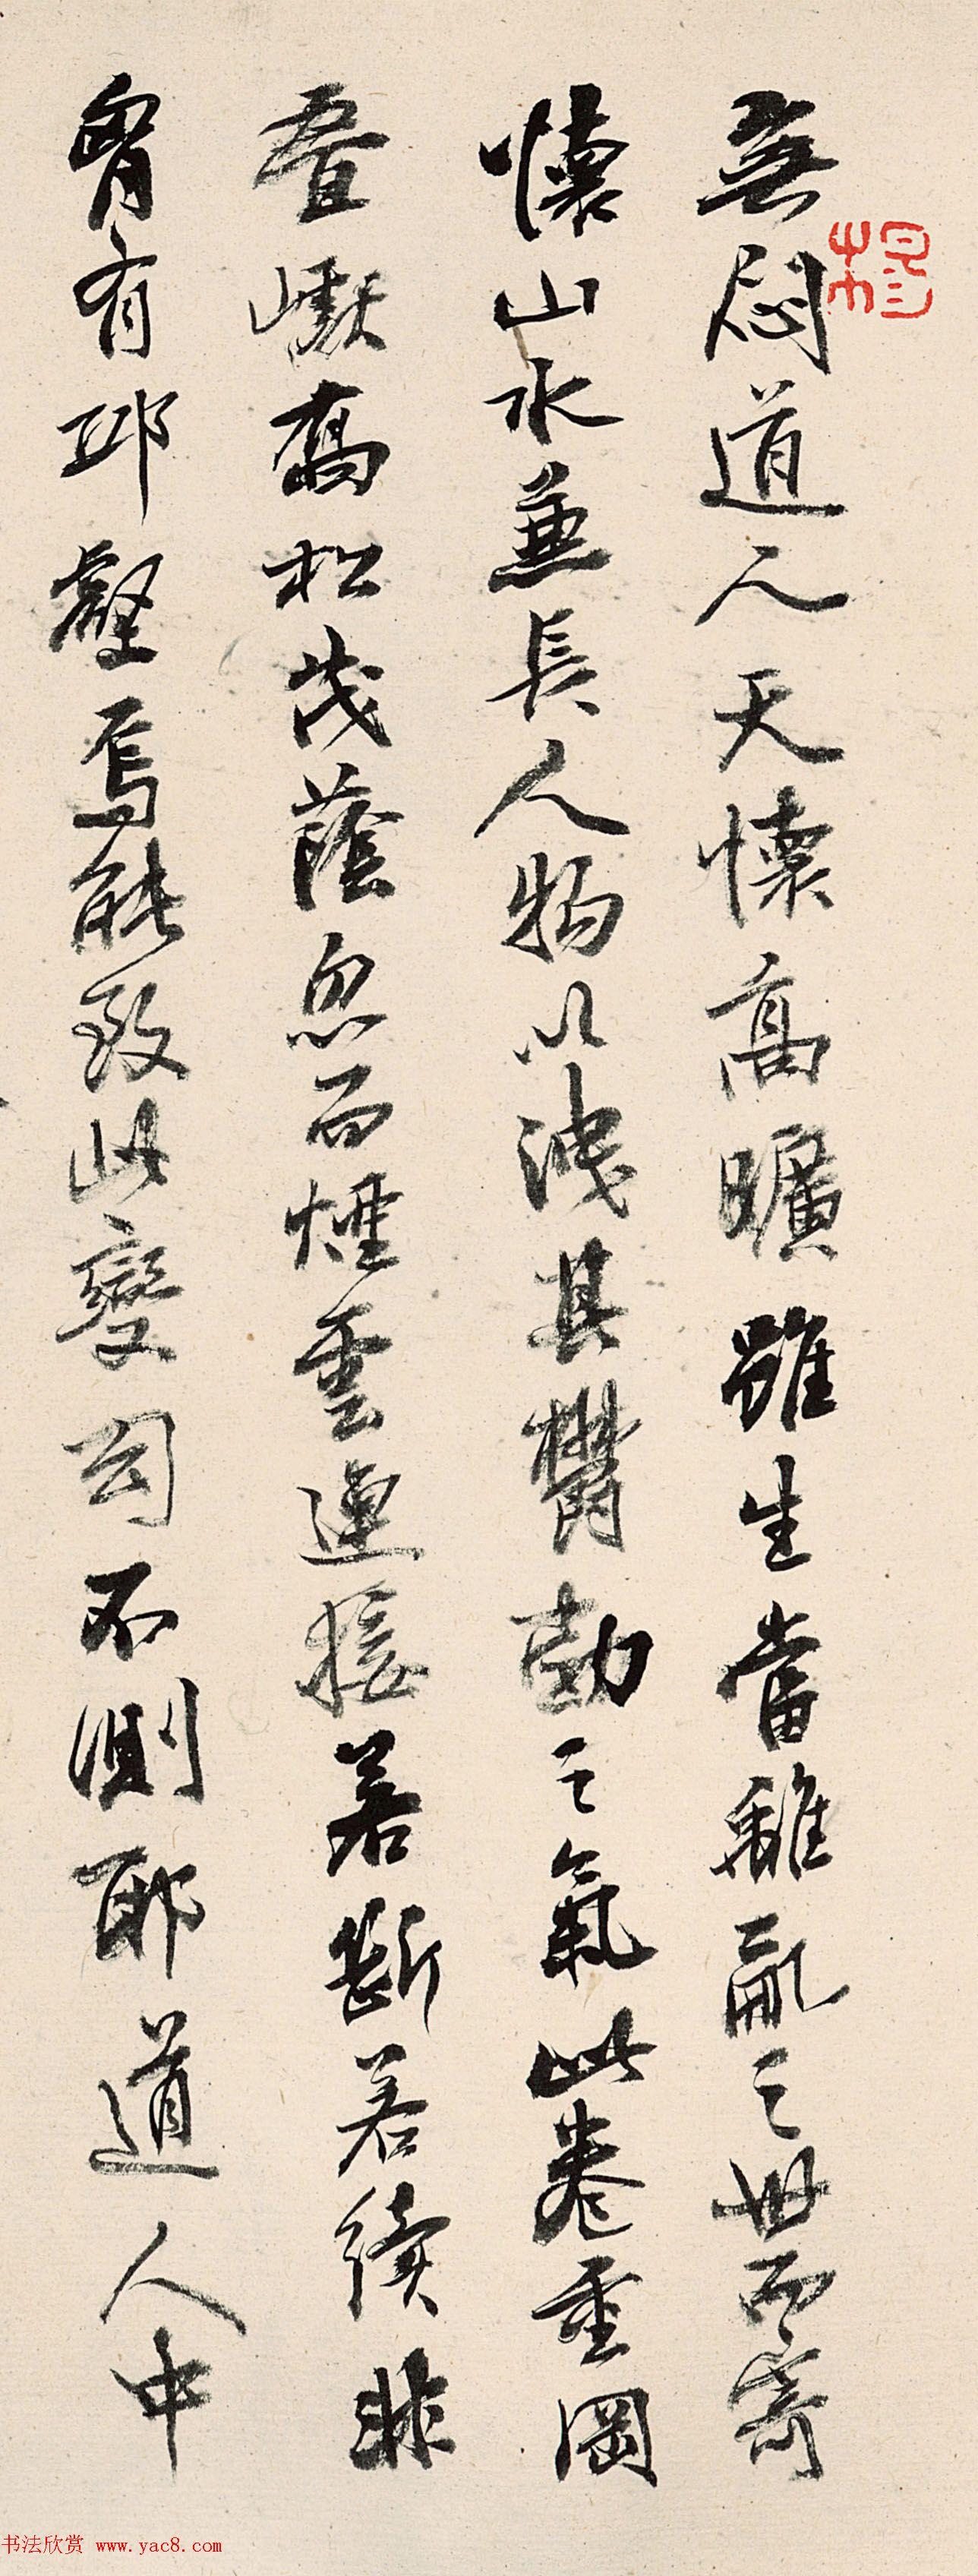 無悶道人天懷高曠雖生當離亂之世而寄
懷山水兼長人物以洩其鬱勃之氣此卷重岡
疊巘喬松茂蔭忽而煙雲連接若斷若續非
胷有邱壑焉能致此變幻不測耶道人中
楊
书法欣赏 www.yac8.com